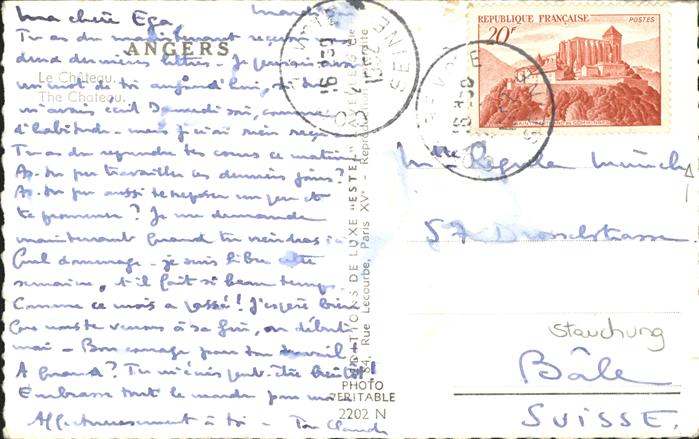 ma chère Ega,
Mardi
Tu as du maintenant recevoir
deux dernières lettres - Je
un mot de toi aujourd'hui, si tu
m'avais écrit Samedi soir, comme
d'habitude - mais je n'ai rien reçu
Tu as du reprendre tes cours ce matin
As-tu pu travailler ces derniers jours?
As-tu pu aussi te reposer un peu et
te promener? Je me demande
maintenant quand tu viendras ici
Quel dommage - je suis libre cette
semaine, et il fait si beau temps.
Comme ce mois a passé! J'espère bien
que nous te verrons à sa fin, ou début
mai - Bon courage pour ton travail +
A quand? Tu m'écris peut-être bientôt!
Embrasse tout le monde pour moi
Affectueusement à toi - Ton Claude
ANGERS
Le Château.
The Chateau.
ÉDITIONS DE LUXE "ESTEL"
84, Rue Lecourbe, Paris XV - Reproduction interdite
PHOTO
VÉRITABLE
2202 N
RÉPUBLIQUE FRANÇAISE
POSTES
20F
SÈVRES
SEINE ET OISE
Mlle Regula Münch
57 Drosselstrasse
Stauchung
Bâle
SUISSE.